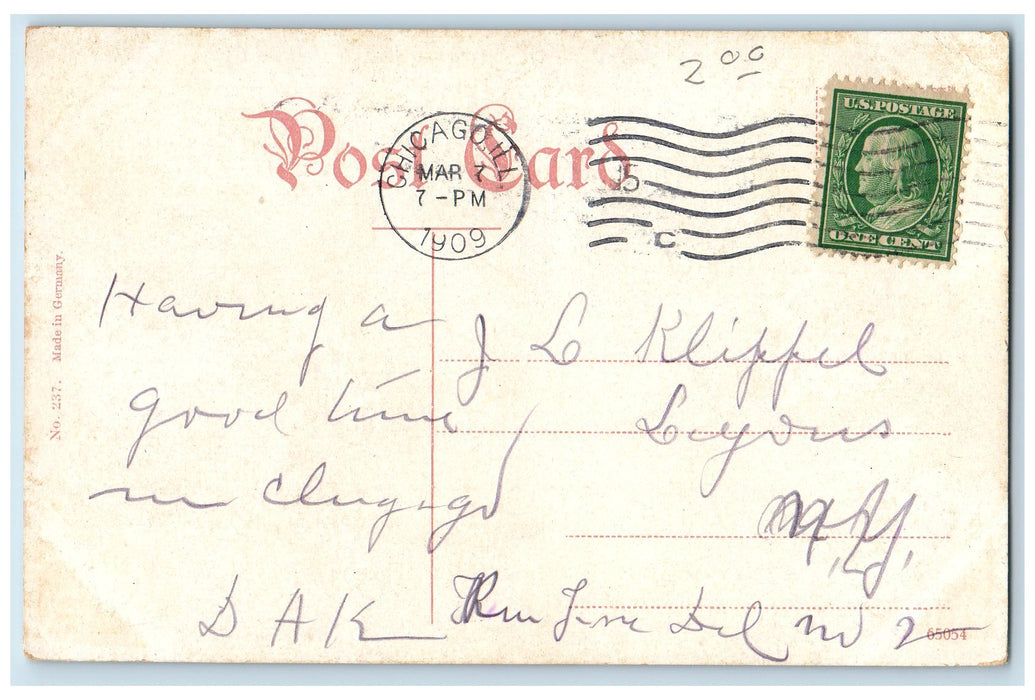 2 00
Post Card
U.S. POSTAGE
ONE CENT
CHICAGO, ILL
MAR 7
7-PM
1909
5
C
No. 237. Made in Germany.
Having a
good time
in
D A K
J L Klippel
Lyons
N.Y.
Del no 2
65054